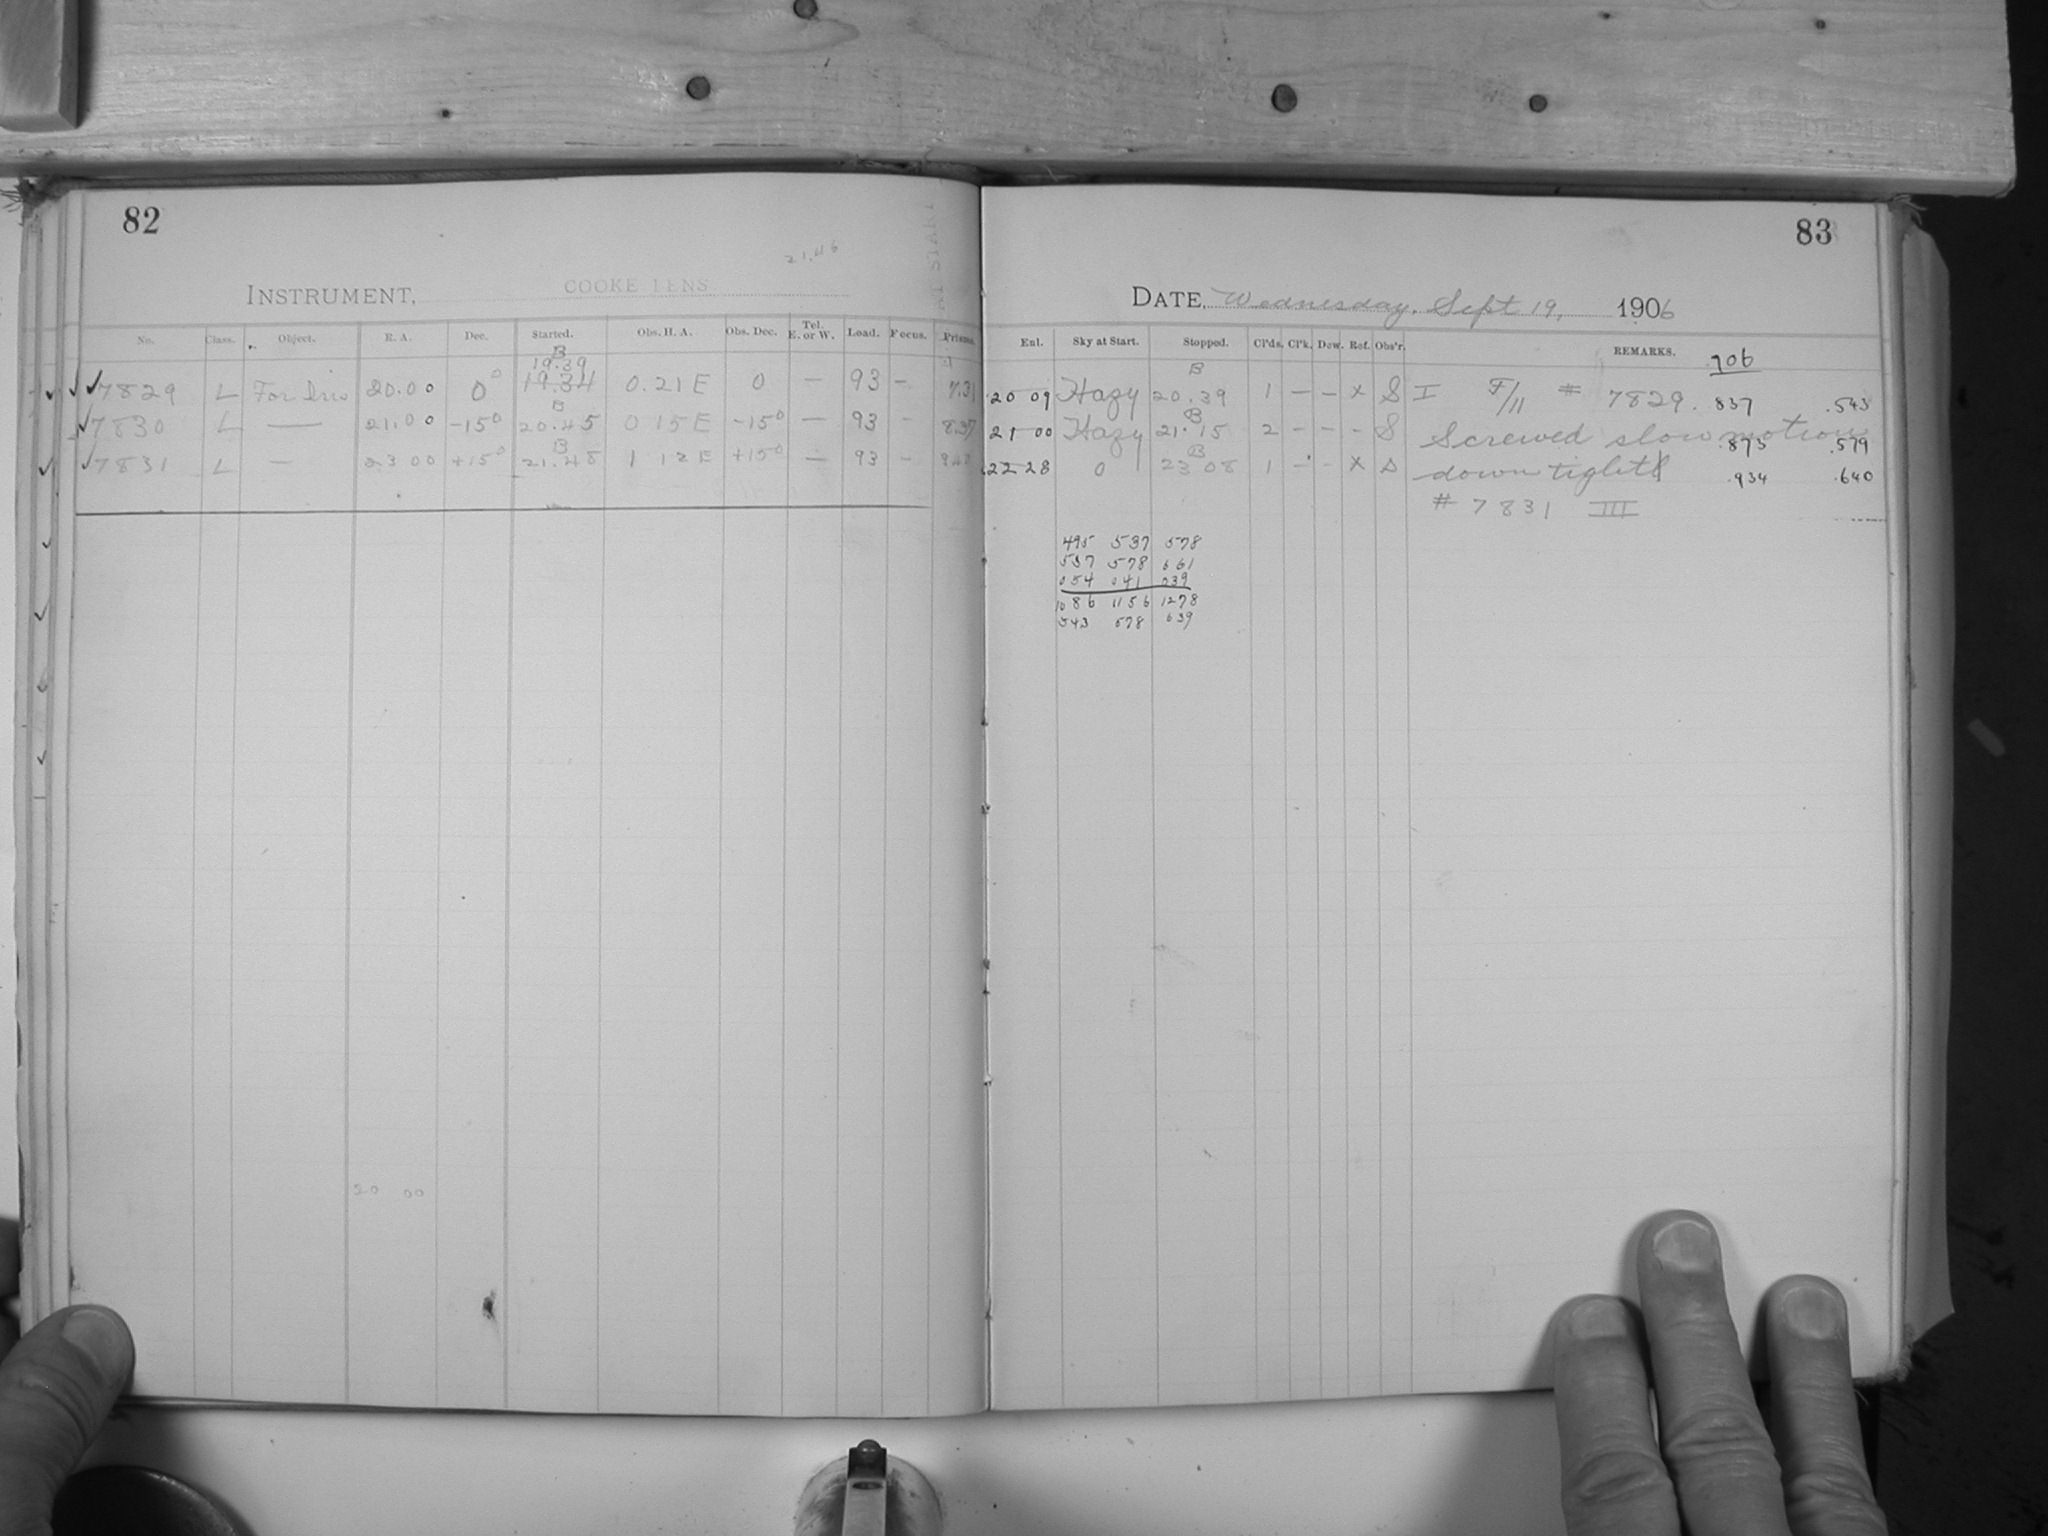 82
21.46
INSTRUMENT, COOKE LENS
No. Class. Object. R. A. Dec. Started. Obs. H. A. Obs. Dec. Tel. E. or W. Load. Focus. Prisms.
B
19.39
✓✓7829 L For 20.00 0° 19.34 0.21 E 0 — 93 – 7.31
B
✓7830 L — 21.00 -15° 20.45 0 15 E -15° — 93 – 8.37
B
✓7831 L — 23 00 +15° 21.48 1 12 E +15° — 93 –
20 00
83
DATE, Wednesday, Sept 19, 1906
Enl. Sky at Start. Stopped. Cl'ds. Cl'k. Dew. Ref. Obs'r. REMARKS.
.706
B
20 09 Hazy 20.39 1 – – x S I F/11 # 7829. .837 .543
B
21 00 Hazy 21.15 2 – – – S Screwed slow motion .873 .579
B
22 28 0 23 08 1 – – x S down tight .934 .640
# 7831 III
495 537 578
537 578 661
054 041 039
1086 1156 1278
543 578 639